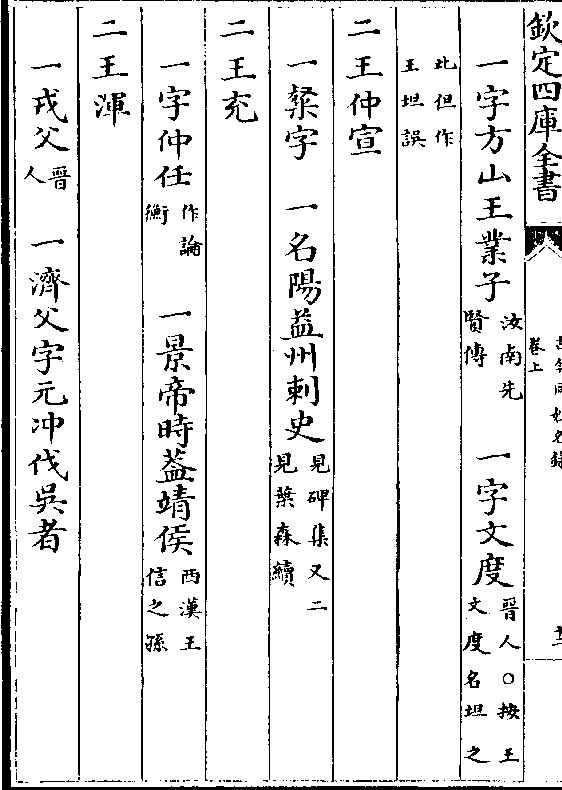 欽定四庫全書
古今同姓名錄
卷上
一字方山王業子汝南先賢傳　一字文度晉人○按王文度名坦之
此但作王坦誤
二王仲宣
一粲字　一名陽益州刺史見碑集又二見葉森續
二王充
一字仲任作論衡　一景帝時葢靖侯西漢王信之孫
二王渾
一戎父晉人　一濟父字元沖伐吳者